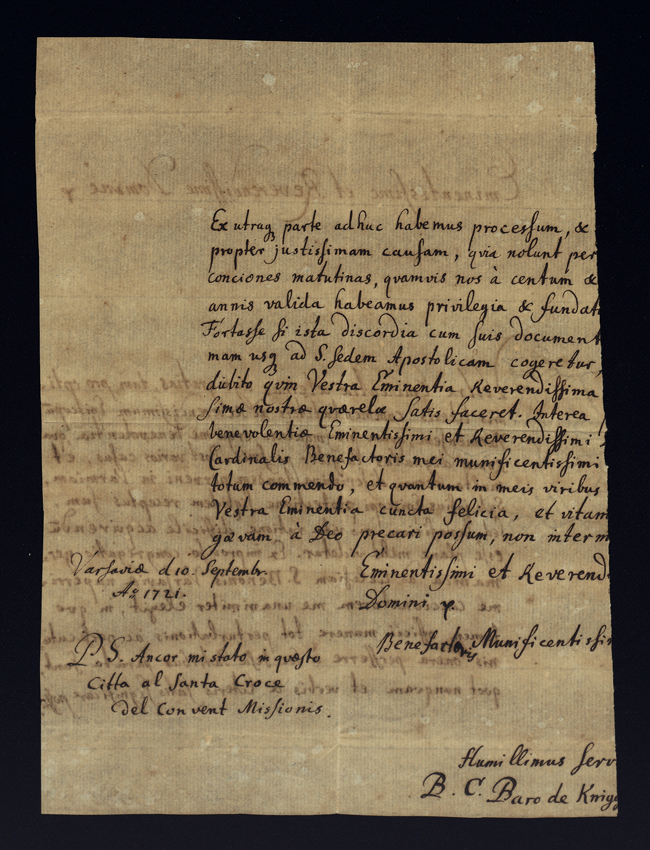 Ex utraq parte adhuc habemus processum, &
propter justissimam causam, quia nolunt per
conciones matutinas, quamvis nos à centum &
annis valida habeamus privilegia & fundat
Fortasse si ista discordia cum suis document
mam usq ad S. Sedem Apostolicam cogeretur,
dubito quin Vestra Eminentia Reverendissima
simæ nostræ quærelæ satis faceret. Interea
benevolentiæ Eminentissimi et Reverendissimi
Cardinalis Benefactoris mei munificentissimi
totum commendo, et quantum in meis viribus
Vestra Eminentia cuncta felicia, et vitam
gævam à Deo precari possum, non interm
Varsaviæ d 10. Septembr.
Aº 1721.
Eminentissimi et Reverend
Domini
Benefactoris Munificentissi
P. S. Ancor mi stato in questo
Citta al Santa Croce
del Convent Missionis.
Humillimus Serv
B. C. Baro de Knigg